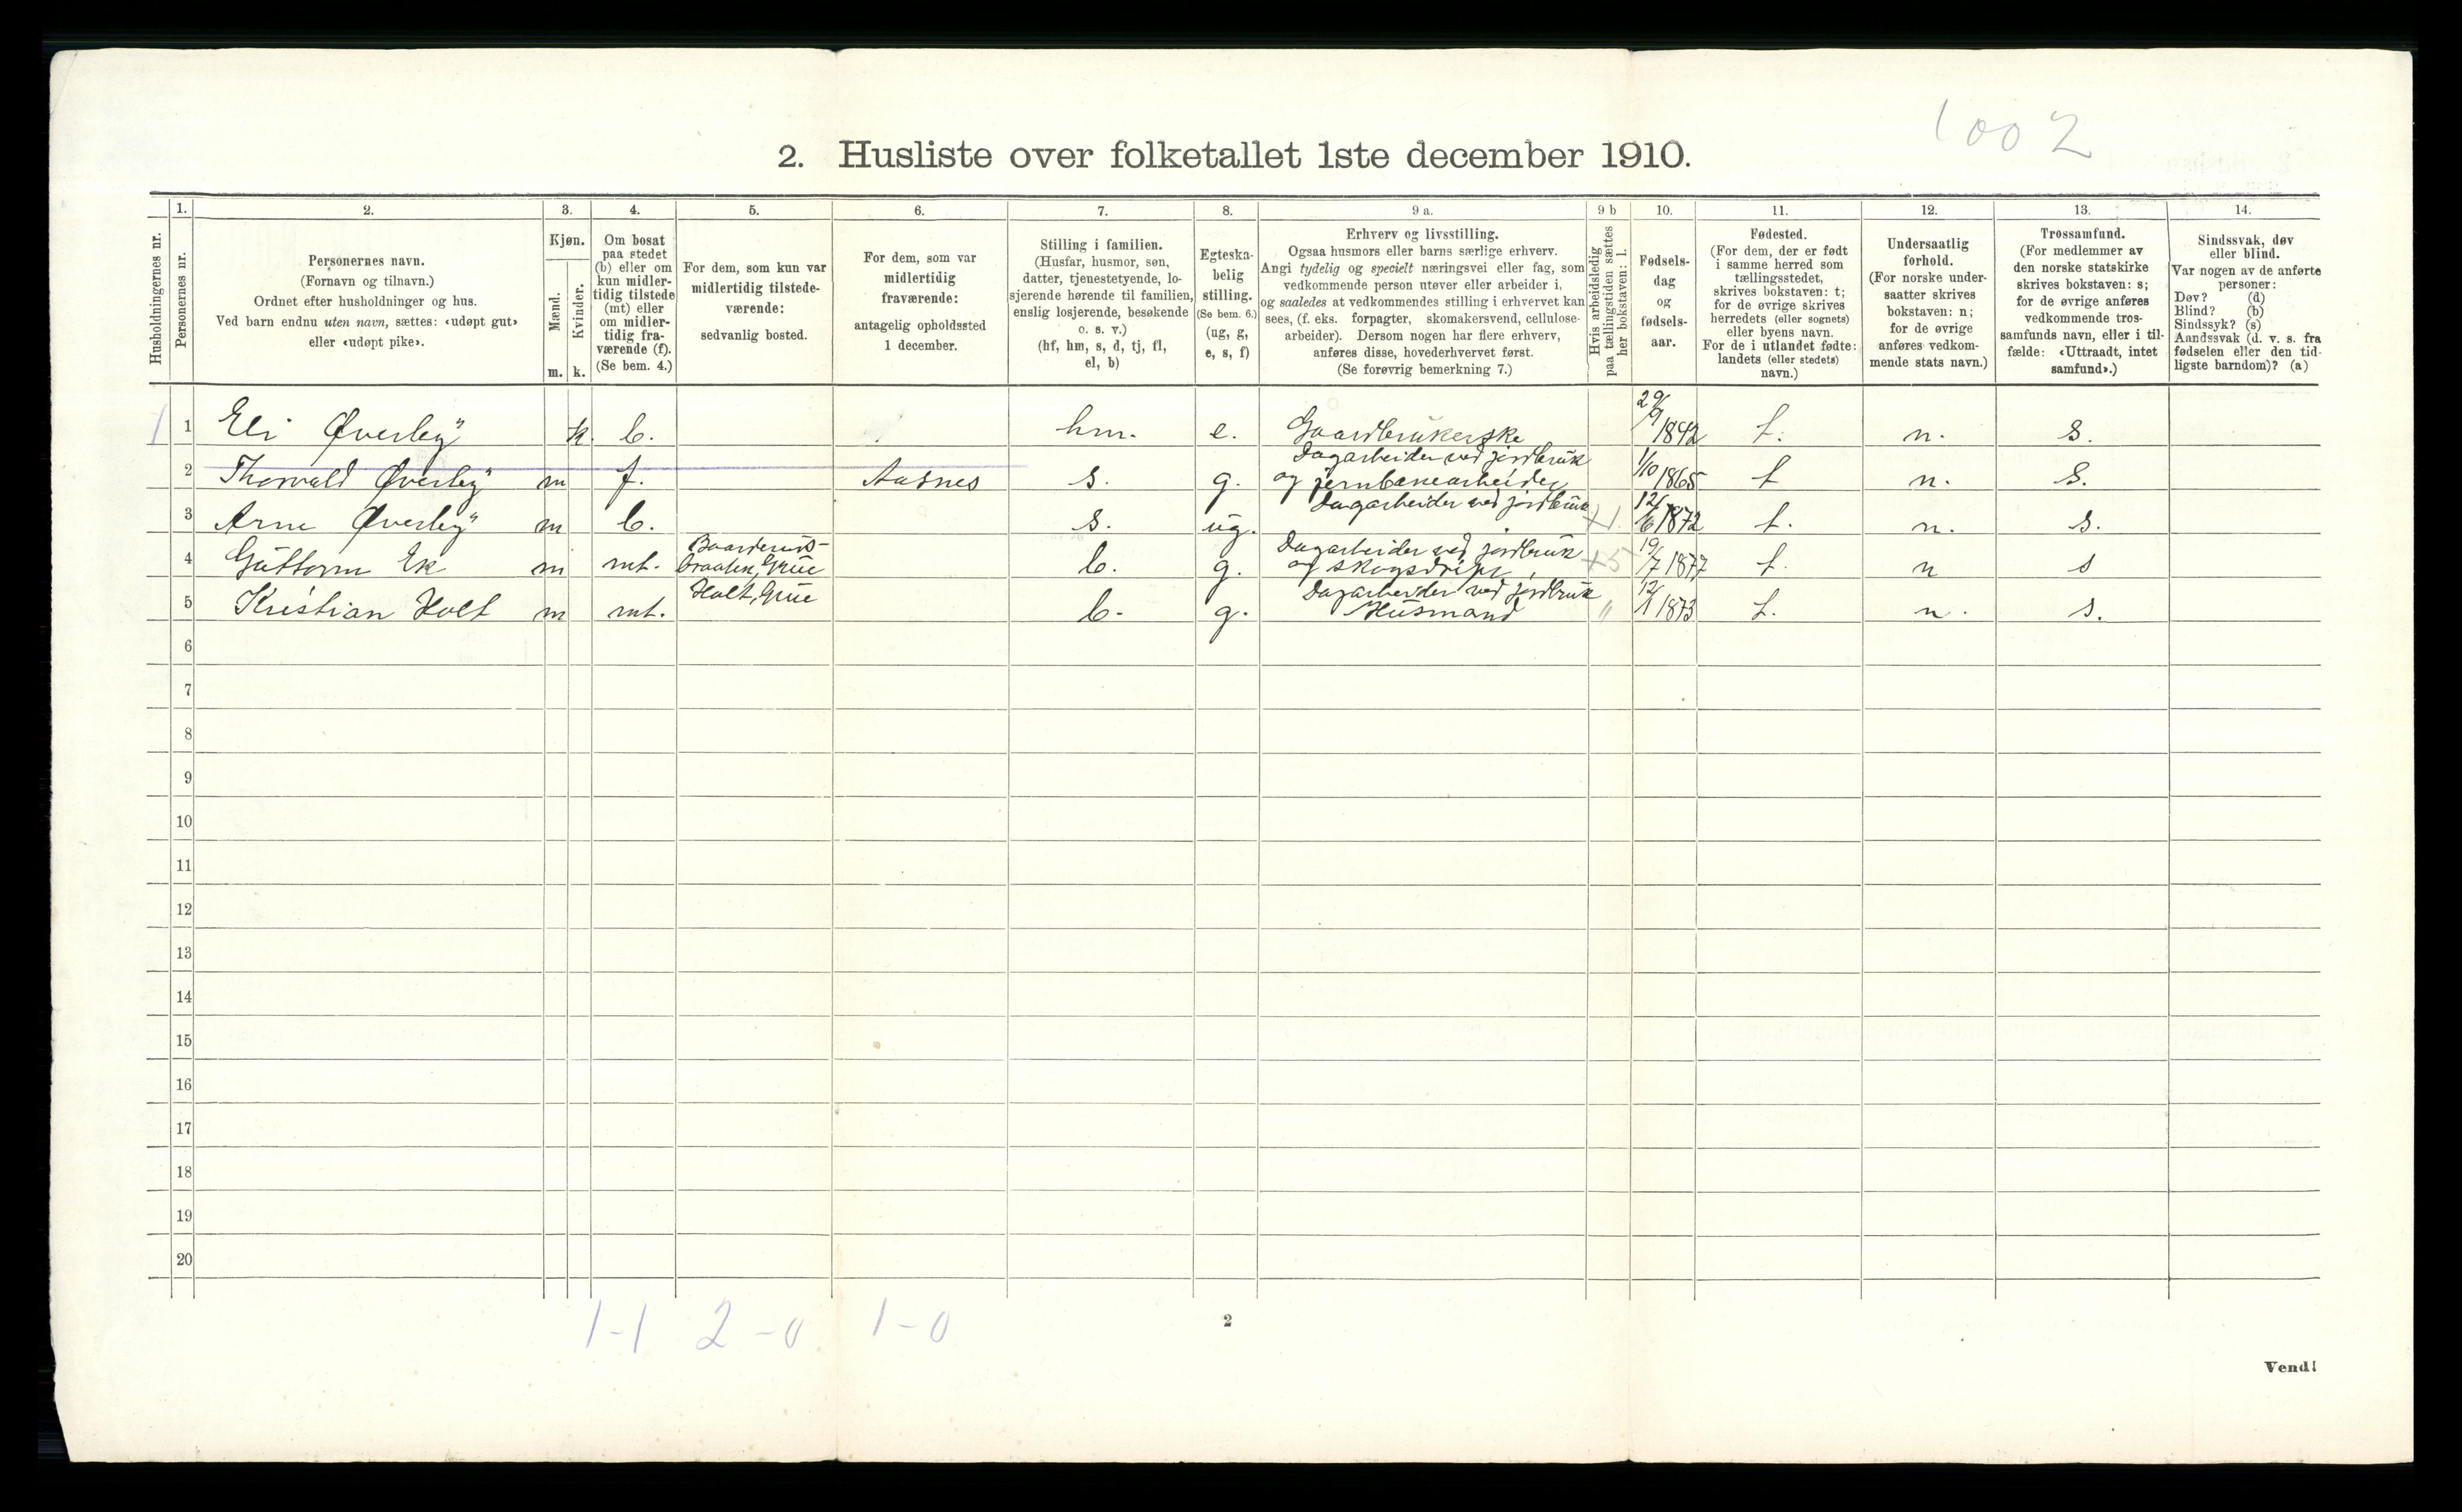 1002
2. Husliste over folketallet 1ste december 1910.
Husholdningernes nr.
1.
Personernes nr.
2.
Personernes navn.
(Fornavn og tilnavn.)
Ordnet efter husholdninger og hus.
Ved barn endnu uten navn, sættes: «udøpt gut»
eller «udøpt pike».
3.
Kjøn.
Mænd.
Kvinder.
m. k.
4.
Om bosat
paa stedet
(b) eller om
kun midler-
tidig tilstede
(mt) eller
om midler-
tidig fra-
værende (f).
(Se bem. 4.)
5.
For dem, som kun var
midlertidig tilstede-
værende:
sedvanlig bosted.
6.
For dem, som var
midlertidig
fraværende:
antagelig opholdssted
1 december.
7.
Stilling i familien.
(Husfar, husmor, søn,
datter, tjenestetyende, lo-
sjerende hørende til familien,
enslig losjerende, besøkende
o. s. v.)
(hf, hm, s, d, tj, fl,
el, b)
8.
Egteska-
belig
stilling.
(Se bem. 6.)
(ug, g,
e, s, f)
9 a.
Erhverv og livsstilling.
Ogsaa husmors eller barns særlige erhverv.
Angi tydelig og specielt næringsvei eller fag, som
vedkommende person utøver eller arbeider i,
og saaledes at vedkommendes stilling i erhvervet kan
sees, (f. eks. forpagter, skomakersvend, cellulose-
arbeider). Dersom nogen har flere erhverv,
anføres disse, hovederhvervet først.
(Se forøvrig bemerkning 7.)
9 b
Hvis arbeidsledig
paa tællingstiden sættes
her bokstaven: l.
10.
Fødsels-
dag
og
fødsels-
aar.
11.
Fødested.
(For dem, der er født
i samme herred som
tællingsstedet,
skrives bokstaven: t;
for de øvrige skrives
herredets (eller sognets)
eller byens navn.
For de i utlandet fødte:
landets (eller stedets)
navn.)
12.
Undersaatlig
forhold.
(For norske under-
saatter skrives
bokstaven: n;
for de øvrige
anføres vedkom-
mende stats navn.)
13.
Trossamfund.
(For medlemmer av
den norske statskirke
skrives bokstaven: s;
for de øvrige anføres
vedkommende tros-
samfunds navn, eller i til-
fælde: «Uttraadt, intet
samfund».)
14.
Sindssvak, døv
eller blind.
Var nogen av de anførte
personer:
Døv? (d)
Blind? (b)
Sindssyk? (s)
Aandssvak (d. v. s. fra
fødselen eller den tid-
ligste barndom)? (a)
1 1 Eli Øverby k. b. hm. e. Gaardbrukerske 29/9 1842 t. n. s.
2 Thorvald Øverby m f. Aasnes s. g. Dagarbeider ved jordbruk og jernbanearbeider 1/10 1865 t n. s.
3 Arne Øverby m b. s. ug. Dagarbeider ved jordbruk 12/6 1872 t. n. s.
4 Guttorm Ek m mt. Baarderuds-braaten, Grue b. g. Dagarbeider ved jordbruk og skogsdrift 19/7 1877 t. n s
5 Kristian Holt m mt. Holt, Grue b. g. Dagarbeider ved jordbruk Husmand " 12/1 1873 t. n. s.
6
7
8
9
10
11
12
13
14
15
16
17
18
19
20
1-1 2-0 1-0
2
Vend!